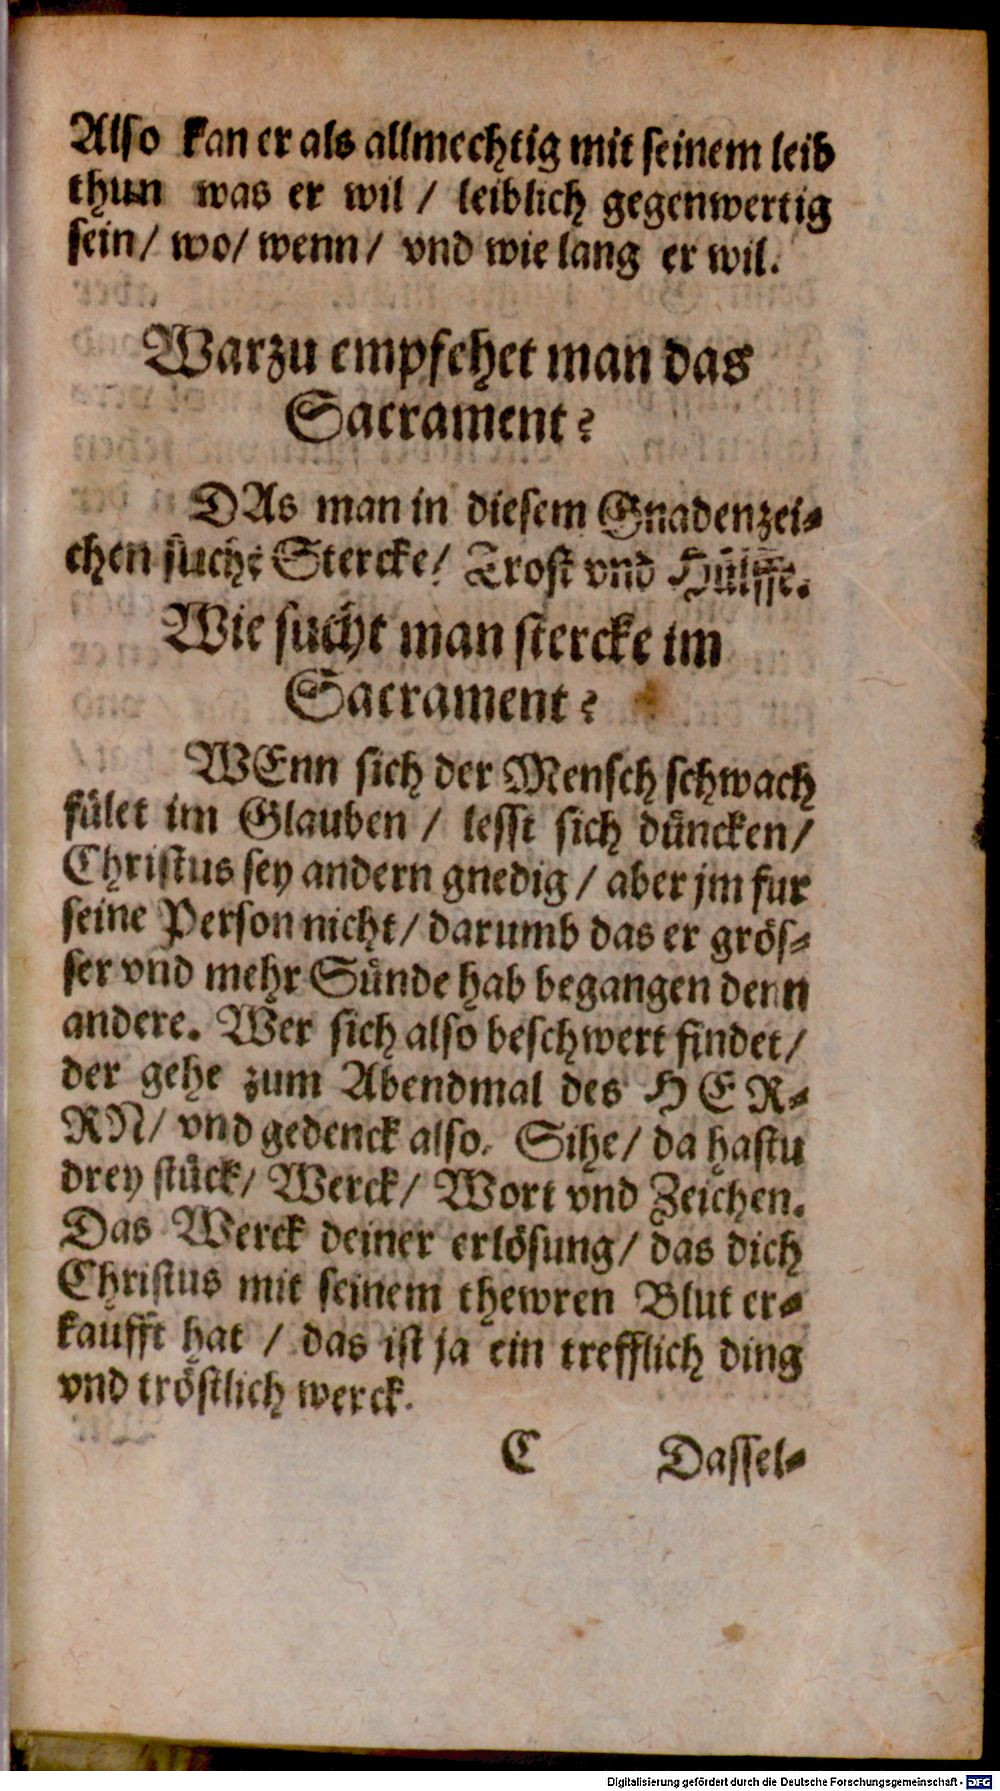 Also kan er als allmechtig mit seinem leib
thun was er wil / leiblich gegenwertig
sein / wo / wenn / vnd wie lang er wil.
Warzu empfehet man das
Sacrament?
DAs man in diesem Gnadenzei-
chen suche Stercke / Trost vnd Hülffe.
Wie sucht man stercke im
Sacrament?
WEnn sich der Mensch schwach
fület im Glauben / lesst sich düncken /
Christus sey andern gnedig / aber jm fur
seine Person nicht / darumb das er grös-
ser vnd mehr Sünde hab begangen denn
andere. Wer sich also beschwert findet /
der gehe zum Abendmal des HER-
RN / vnd gedenck also. Sihe / da hastu
drey stück / Werck / Wort vnd Zeichen.
Das Werck deiner erlösung / das dich
Christus mit seinem thewren Blut er-
kaufft hat / das ist ja ein trefflich ding
vnd tröstlich werck.
C Dassel-
Digitalisierung gefördert durch die Deutsche Forschungsgemeinschaft - DFG